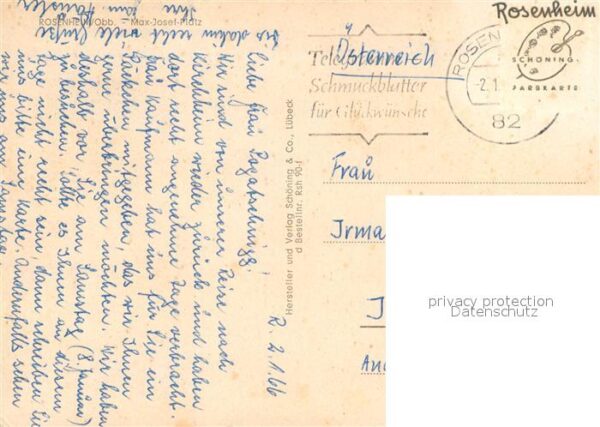 ROSENHEIM/Obb. - Max-Josef-Platz
R. 2.1.66
Liebe Frau
Wir sind von unserer Reise nach
wieder zurück und haben
dort recht angenehme Tage verbracht.
Frau Kaufmann hat uns für Sie ein
Päckchen mitgegeben, das wir Ihnen
gerne überbringen möchten. Wir haben
vor, Sie am Samstag (8. Januar)
zu besuchen. Sollte es Ihnen an diesem
Tage nicht recht sein, dann schreiben Sie
uns bitte eine Karte. Andernfalls sehen
wir uns am Samstag.
Bis dahin recht viele Grüße
Ihre
Hersteller und Verlag Schöning & Co., Lübeck
d Bestellnr. Rsh 90-f
Rosenheim
Österreich
Schmuckblätter
für Glückwünsche
ROSEN
-2.1
82
SCHÖNING
FARBKARTE
Frau
Irma
J
privacy protection
Datenschutz